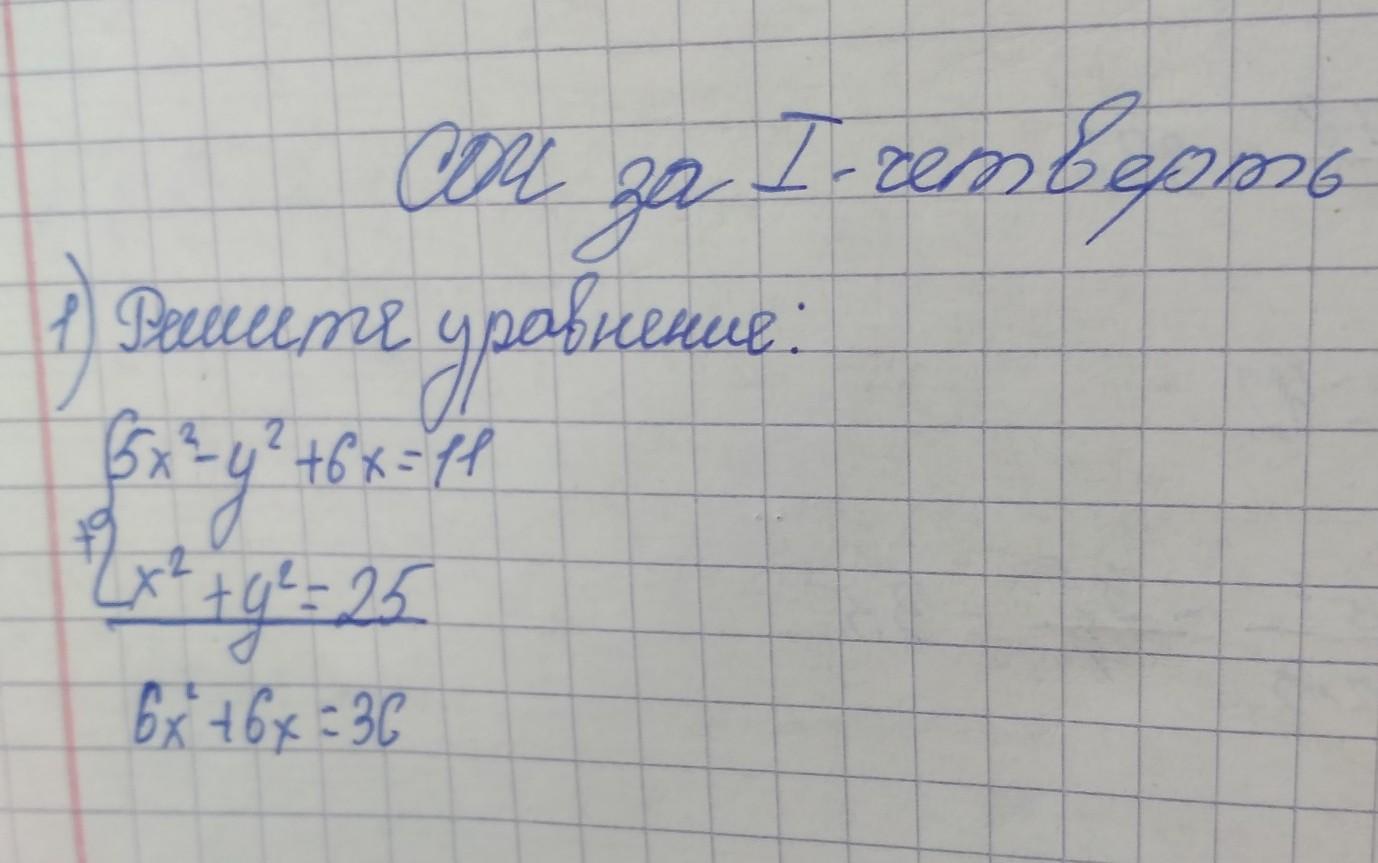 СОЧ за I-четверть
1) Решите уравнение:
{5x²-y²+6x=11
+{x²+y²=25
6x²+6x=36